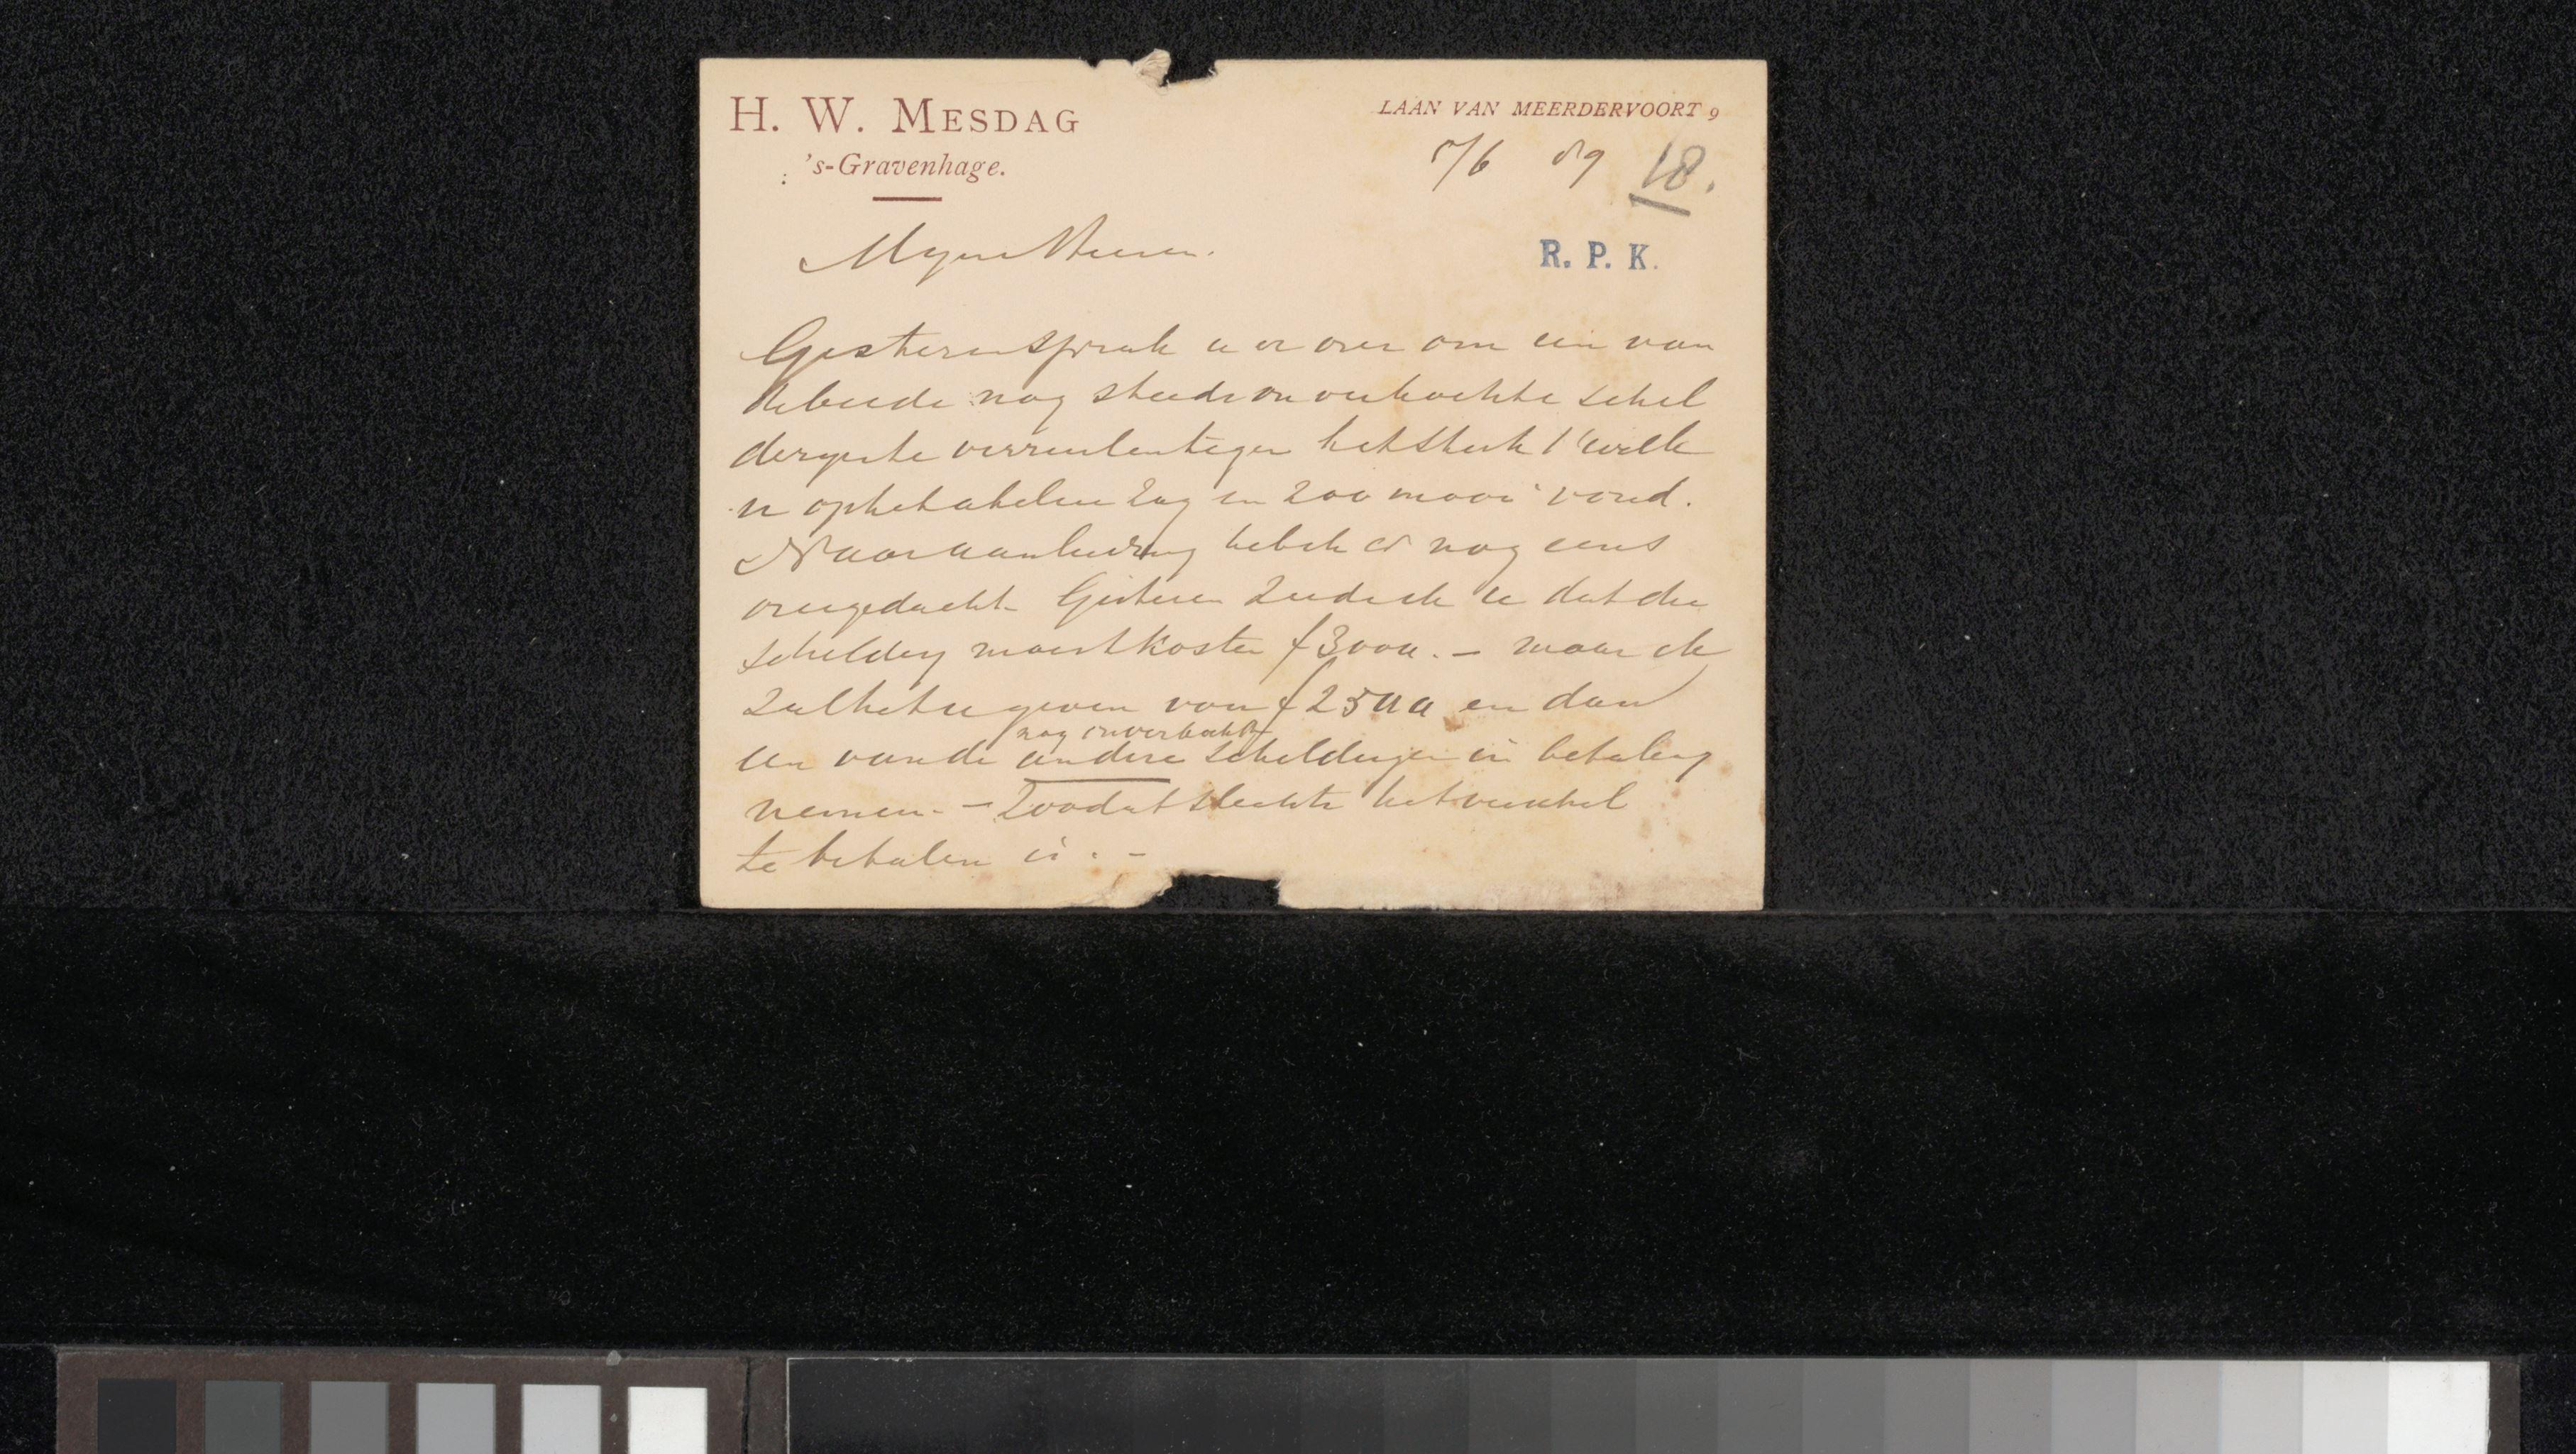 H. W. MESDAG
's-Gravenhage.
LAAN VAN MEERDERVOORT 9
5/6 89 18.
R. P. K.
Myne Heeren.
Gisteren sprak u er over om een van
de beide nog steeds onverkochte schil
deryen te verruilen tegen het stuk 't welk
u op het atelier zag en zoo mooi vond.
Naar aanleiding heb ik er nog eens
over gedacht. Gisteren zeide ik u dat die
schildery moest kosten f 3000.- maar ik
zal het u geven voor f 2500 en dan
nog onverkochte
een van de andere schilderyen in betaling
nemen. - Zoodat slechts het verschil
te betalen is. -